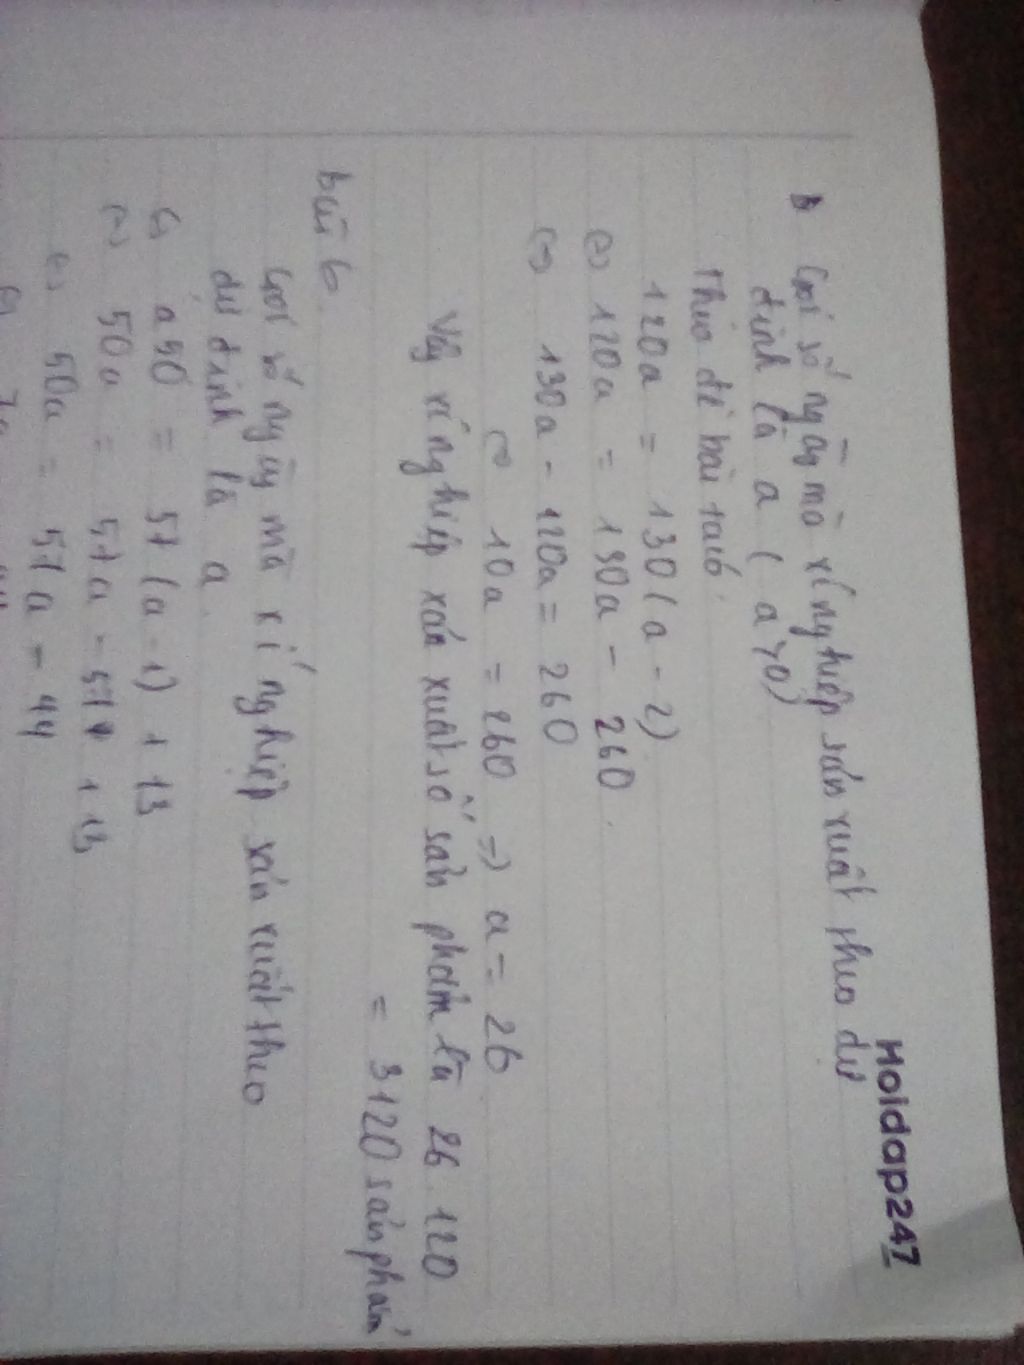 Hoidap247
Gọi số ngày mà xí nghiệp sản xuất theo dự
định là a ( a > 0)
Theo đề bài ta có
120a = 130 ( a - 2)
(=) 120a = 130a - 260.
(=) 130a - 120a = 260
(=) 10a = 260 => a = 26
Vậy xí nghiệp sản xuất số sản phẩm là 26.120
= 3120 sản phẩm
bài 6.
Gọi số ngày mà xí nghiệp sản xuất theo
dự định là a.
a50 = 57 (a - 1) + 13
(=) 50a = 57a - 57 + 13
(=) 50a = 57a - 44